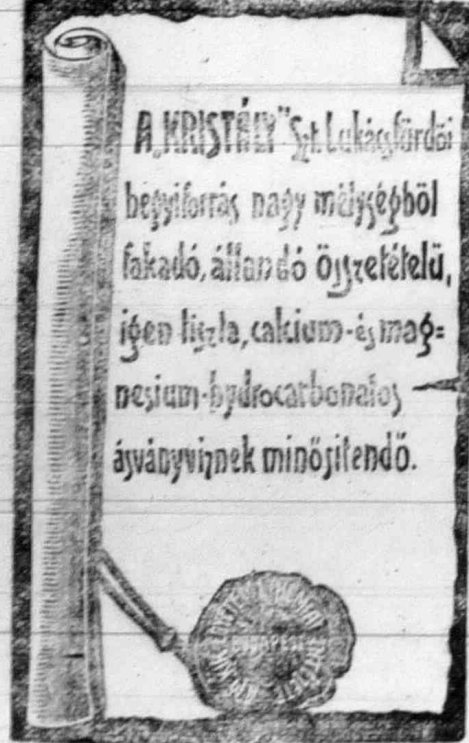 A „KRISTÁLY" Szt. Lukácsfürdői
hegyiforrás nagy mélységből
fakadó, állandó összetételű,
igen tiszta, calcium- és mag=
nesium-hydrocarbonatos
ásványviznek minősitendő.
BUDAPEST